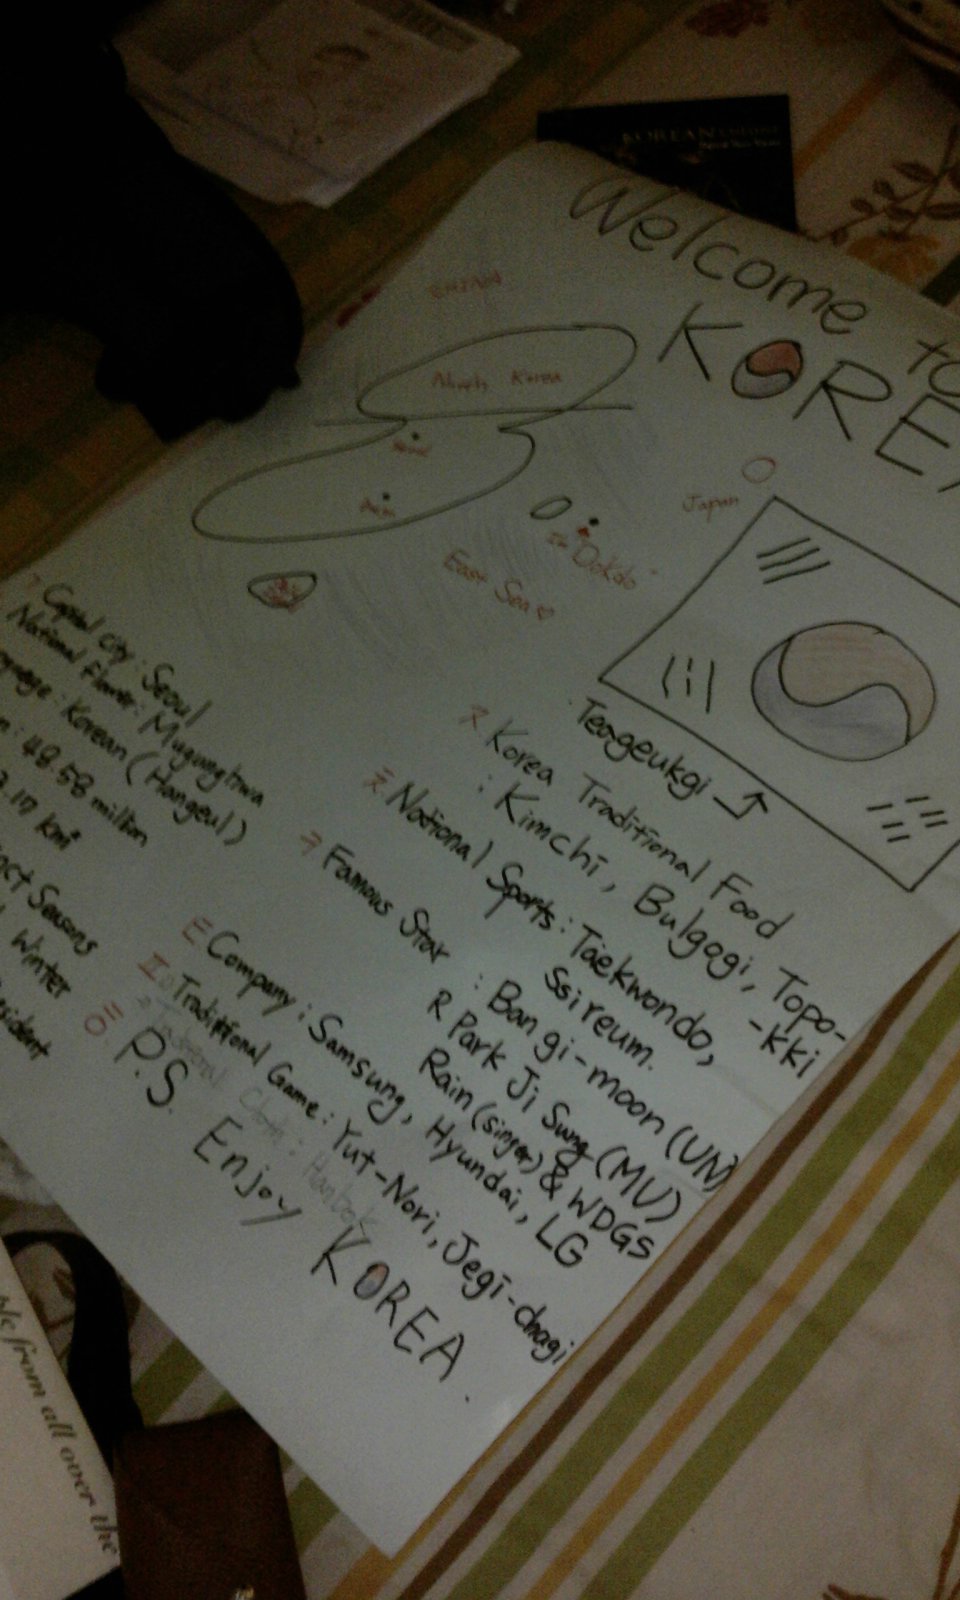 KOREAN
Welcome to
KOREA
CHINA
North Korea
Seoul
Japan
Dokdo
East Sea♡
ㄱ Capital City: Seoul
National Flower: Mugunghwa
Korean (Hangeul)
: 48.58 million
km²
Seasons
Winter
Teageukgi
ㅈ Korea Traditional Food
: Kimchi, Bulgogi, Topo-
-kki
ㅊ National Sports: Taekwondo,
Ssireum.
ㅋ Famous Star : Ban gi-moon (UN)
R Park Ji Sung (MU)
Rain (singer) & WDGS
ㅌ Company: Samsung, Hyundai, LG
ㅍ Traditional Game: Yut-Nori, Jegi-chagi
Cloth: Hanbok
ㅎ P.S. Enjoy KOREA.
from all over the